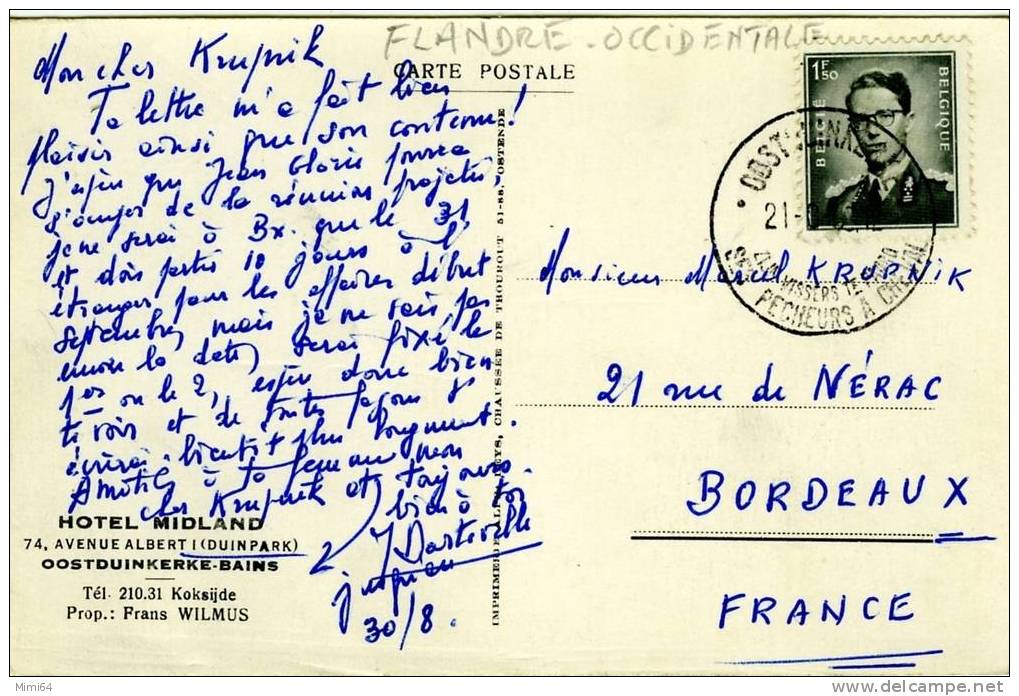 FLANDRE - OCCIDENTALE
CARTE POSTALE
Mon cher Krupnik
Ta lettre m'a fait bien
plaisir ainsi que son contenu !
J'espère que Jean pourra
s'occuper de la réunion projetée,
je ne serai à Bx. que le 31
et dois partir 10 jours à l'
étranger pour les affaires début
septembre, mais je ne sais pas
encore la date, serai fixé le
1er ou le 2, espère donc bien
te voir et de toutes façons t'
écrirai bientôt plus longuement.
Amitiés à ta femme mon
cher Krupnik et toujours
bien à toi
J Darteville
jusqu'au
30/8.
HOTEL MIDLAND
74, AVENUE ALBERT I (DUINPARK)
OOSTDUINKERKE-BAINS
Tél. 210.31 Koksijde
Prop.: Frans WILMUS
CHAUSSÉE DE THOUROUT 51-88, OSTENDE
1F50
BELGIË
BELGIQUE
VISSERS TE PAARD
PECHEURS A CHEVAL
Monsieur Marcel KRUPNIK
21 rue de NÉRAC
BORDEAUX
FRANCE
Mimi64
delcampe.net